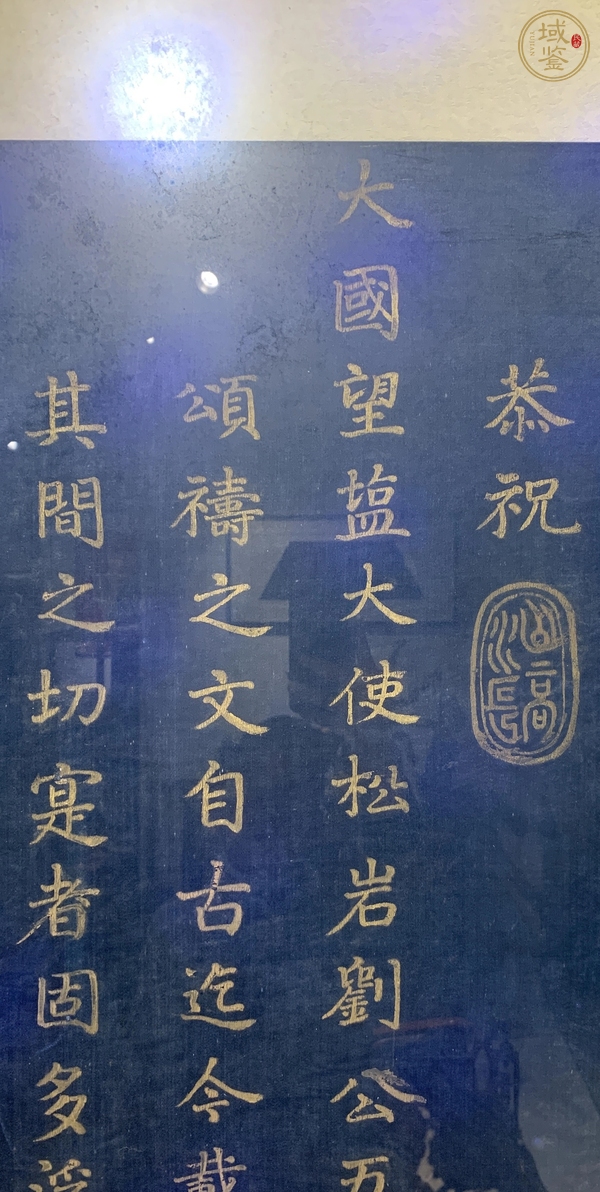 恭祝
大國望塩大使松岩劉公五
頌禱之文自古迄今載
其間之切寔者固多浮
山高水長
域鉴